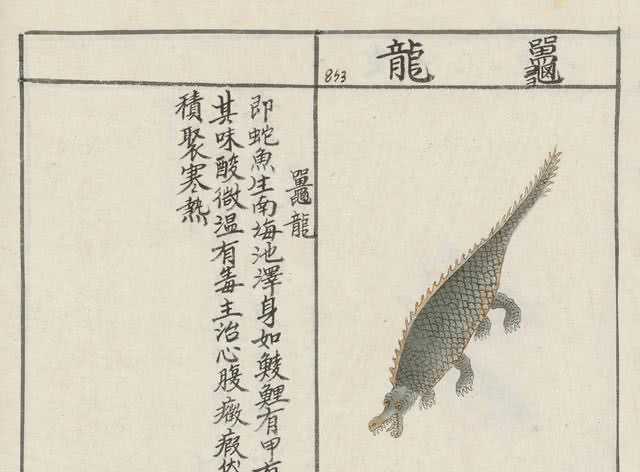 鼉龍
鼉龍
即蛇魚生南海池澤身如鯪鯉有甲
其味酸微温有毒主治心腹癥瘕伏
積聚寒熱